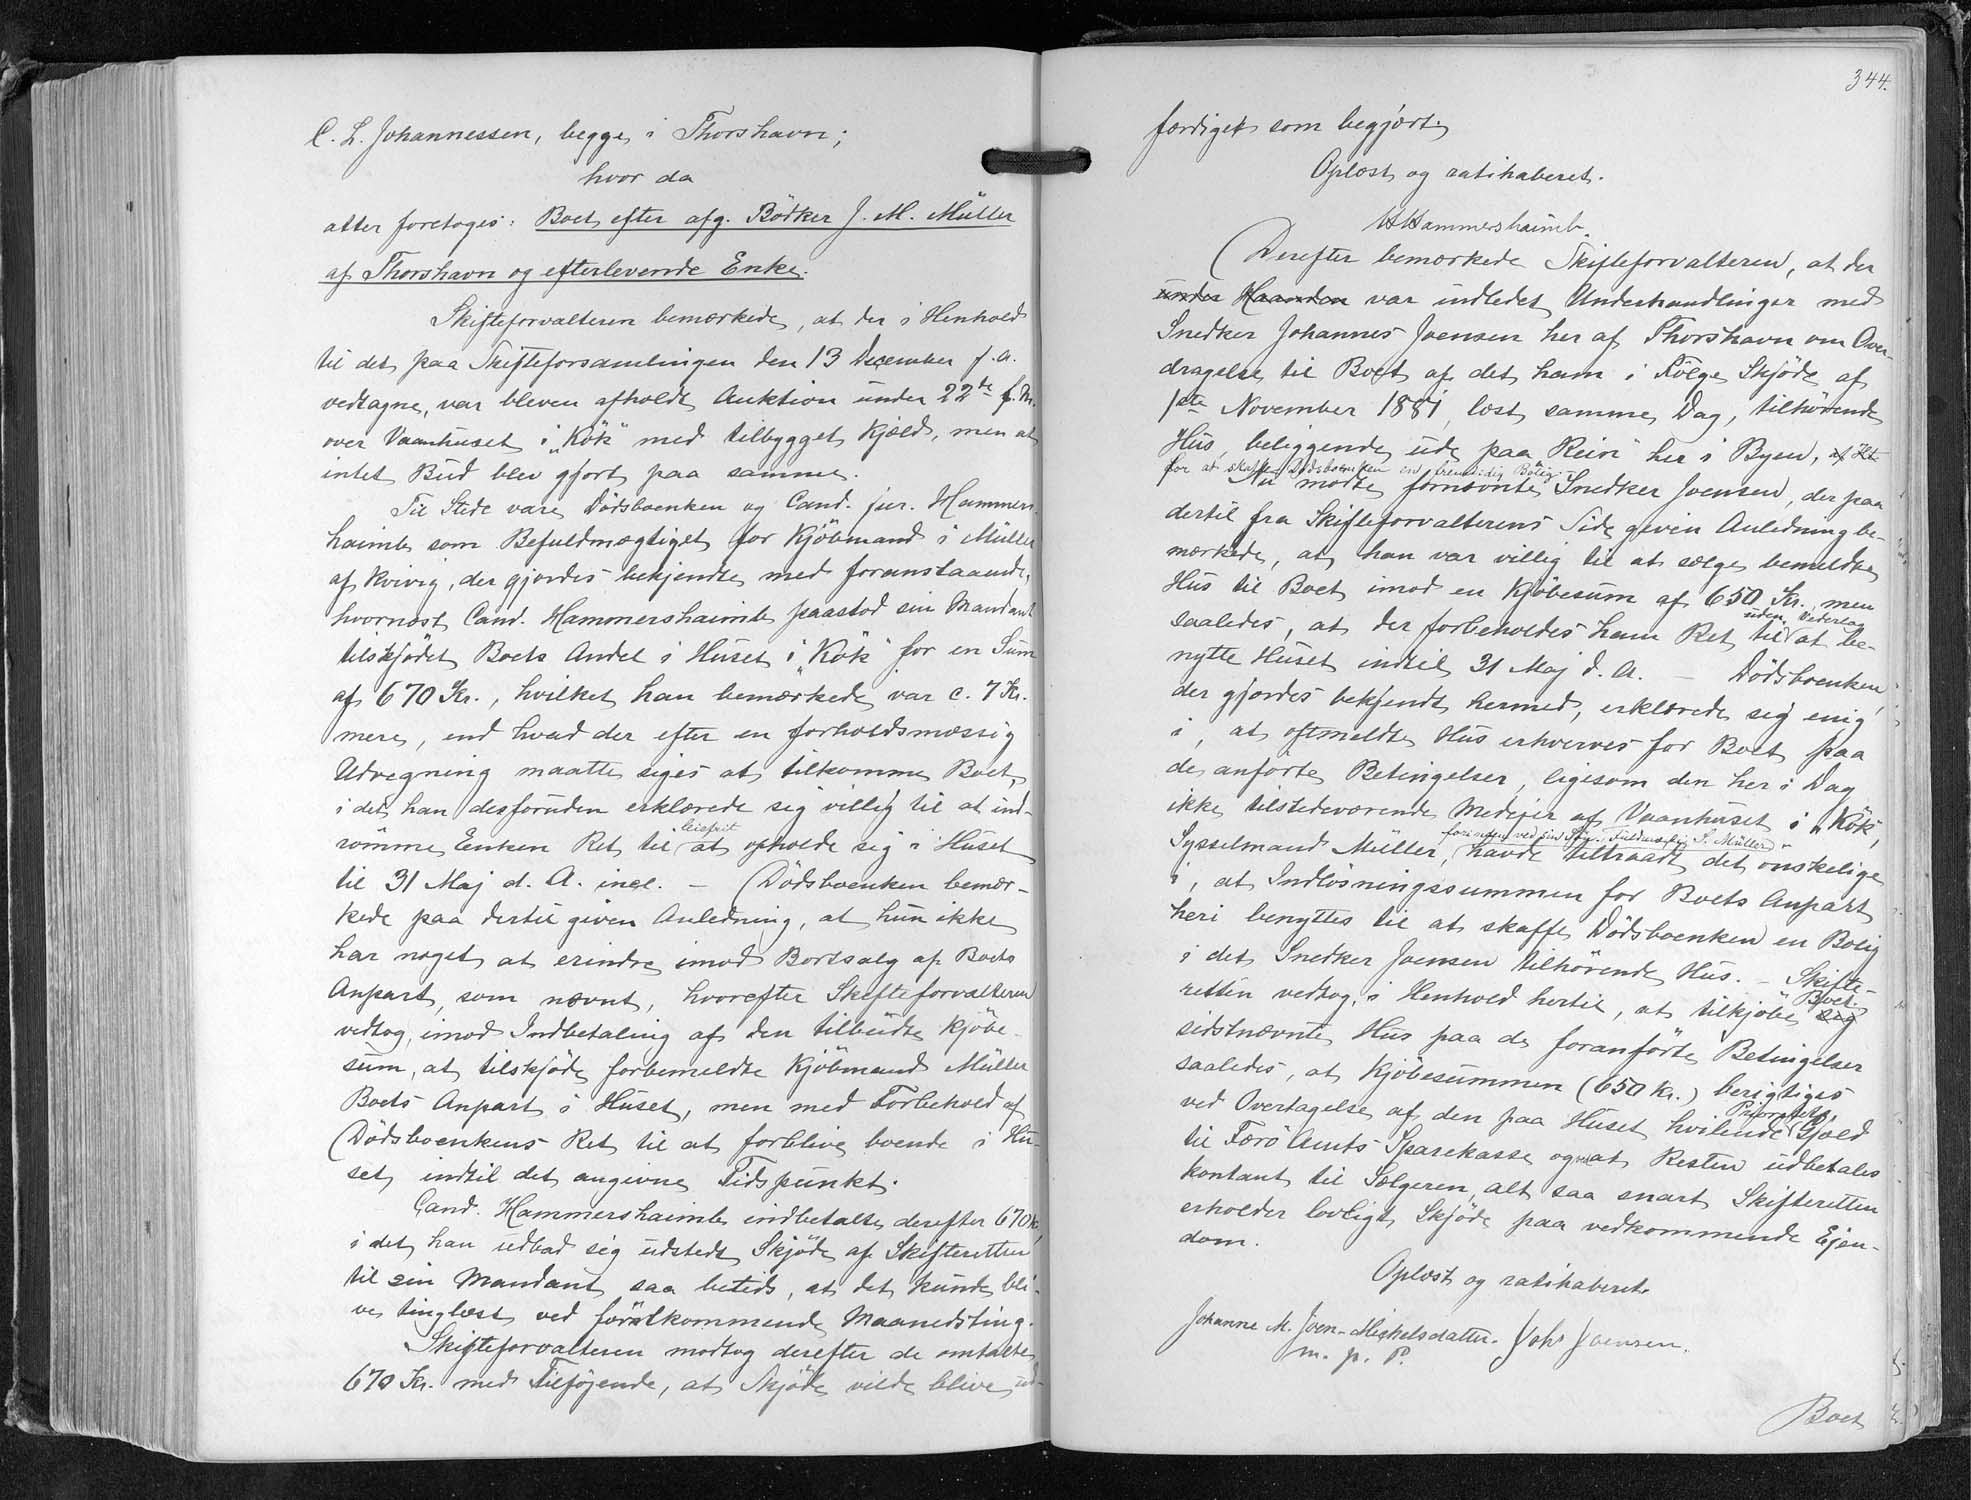 C. L. Johannessen, begge i Thorshavn;
hvor da
atter foretoges: Boet efter afg. Bödker J. M. Müller
af Thorshavn og efterlevende Enke.
Skifteforvalteren bemærkede, at der i Henhold
til det paa Skifteforsamlingen den 13 December f. A.
vedtagne, var bleven afholdt Auktion under 22de f. M.
over Vaanhuset i „Kök" med tilbygget Kjæld, men at
intet Bud blev gjort paa samme.
Til Stede vare Dödsboenken og Cand. jur. Hammers-
haimb som Befuldmægtiget for Kjöbmand i Müller
af Kvivig, der gjordes bekjendte med foranstaaende,
hvornæst Cand. Hammershaimb paastod sin Mandant
tilskjödet Boets Andel i Huset i „Kök" for en Sum
af 670 Kr., hvilket han bemærkede var c. 7 Kr.
mere, end hvad der efter en forholdsmæssig
Udregning maatte siges at tilkomme Boet,
i det han desforuden erklærede sig villig til at ind-
römme Enken Ret til leiefrit at opholde sig i Huset
til 31 Maj d. A. incl. – Dödsboenken bemær-
kede paa dertil given Anledning, at hun ikke
har noget at erindre imod Bortsalg af Boets
Anpart, som nævnt, hvorefter Skifteforvalteren
vedtog, imod Indbetaling af den tilbudte Kjöbe-
sum, at tilskjöde forbemeldte Kjöbmand Müller
Boets Anpart i Huset, men med Forbehold af
Dödsboenkens Ret til at forblive boende i Hu-
set indtil det angivne Tidspunkt.
Cand. Hammershaimb indbetalte derefter 670 K,
i det han udbad sig udstedt Skjöde af Skifteretten
til sin Mandant saa betids, at det kunde bli-
ve tinglæst ved förstkommende Maanedsting.
Skifteforvalteren modtog derefter de omtalte
670 Kr. med Tilföjende, at Skjöde vilde blive ud-
344.
færdiget som begjært.
Oplæst og ratihaberet.
HHammershaimb.
Derefter bemærkede Skifteforvalteren, at der
under Haanden var indledet Underhandlinger med
Snedker Johannes Joensen her af Thorshavn om Over-
dragelse til Boet af det ham i Fölge Skjöde af
1ste November 1881, læst samme Dag, tilhörende
Hus, beliggende ude paa Rein her i Byen, af Ht
for at skaffe Dödsboenken en fremtidig Bolig.
Nu mødte fornævnte Snedker Joensen, der paa
dertil fra Skifteforvalterens Side given Anledning be-
mærkede, at han var villig til at sælge bemeldte
Hus til Boet imod en Kjöbesum af 650 Kr., men
saaledes, at der forbeholdes ham Ret til uden Vederlag at be-
nytte Huset indtil 31 Maj d. A. – Dödsboenken,
der gjordes bekjendt hermed, erklærede sig enig
i, at oftmeldte Hus erhverves for Boet paa
de anförte Betingelser, ligesom den her i Dag
ikke tilstedeværende Medejer af Vaanhuset i „Kök",
Sysselmand Müller, forinden ved sin Fuldmægtig S. Müller havde tiltraadt det önskelige
i, at Indlösningssummen for Boets Anpart
heri benyttes til at skaffe Dödsboenken en Bolig
i det Snedker Joensen tilhörende Hus. – Skifte-
retten vedtog, i Henhold hertil, at tilkjöbe sig Boet
sidstnævnte Hus paa de foranförte Betingelser
saaledes, at Kjöbesummen (650 Kr.) berigtiges
ved Overtagelse af den paa Huset hvilende Prioritets Gjæld
til Færö Amts Sparekasse og at Resten udbetales
kontant til Sælgeren, alt saa snart Skifteretten
erholder lovligt Skjöde paa vedkommende Ejen-
dom.
Oplæst og ratihaberet.
Johanne M. Joen-Mickelsdatter. Johs Joensen.
m. p. P.
Boet